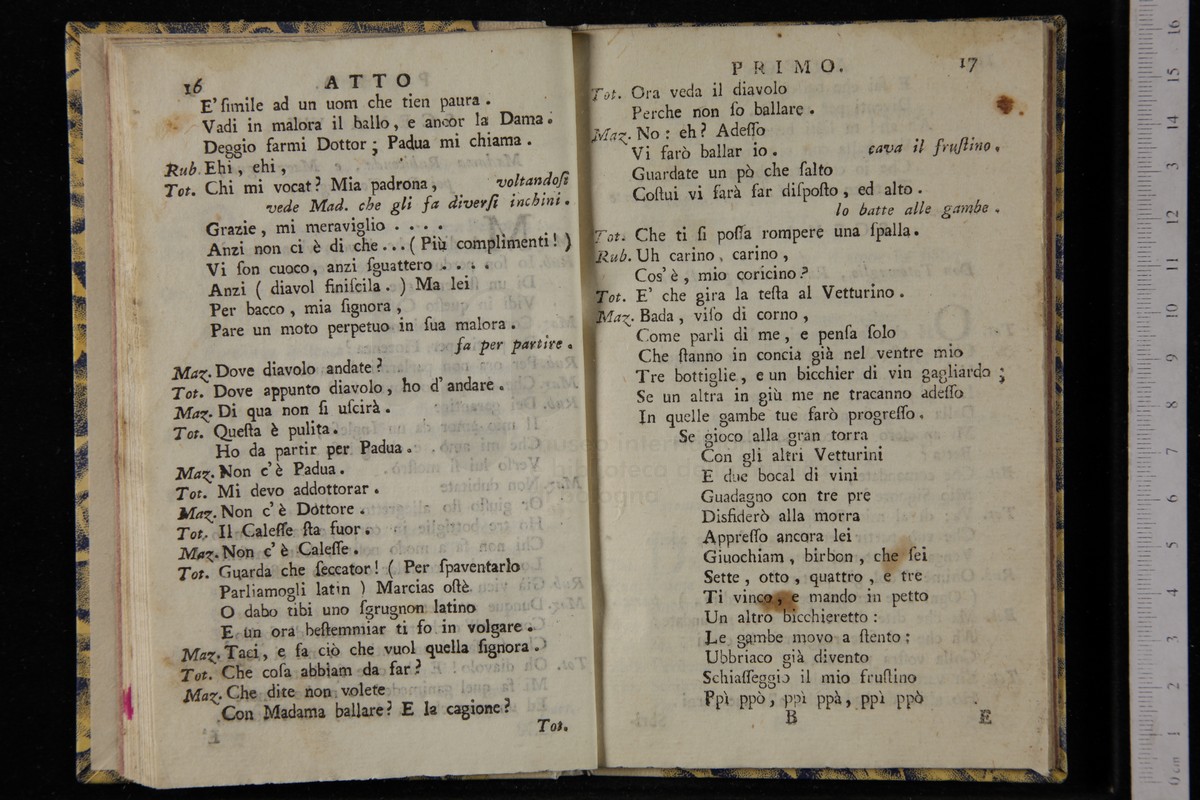 16 ATTO
E' ſimile ad un uom che tien paura.
Vadi in malora il ballo, e ancor la Dama.
Deggio farmi Dottor; Padua mi chiama.
Rub. Ehi, ehi,
Tot. Chi mi vocat? Mia padrona, voltandoſi
vede Mad. che gli fa diverſi inchini.
Grazie, mi meraviglio . . . .
Anzi non ci è di che...(Più complimenti!)
Vi ſon cuoco, anzi ſguattero . . . .
Anzi ( diavol finiſcila. ) Ma lei
Per bacco, mia ſignora,
Pare un moto perpetuo in ſua malora.
fa per partire.
Maz. Dove diavolo andate?
Tot. Dove appunto diavolo, ho d'andare.
Maz. Di qua non ſi uſcirà.
Tot. Queſta è pulita.
Ho da partir per Padua.
Maz. Non c'è Padua.
Tot. Mi devo addottorar.
Maz. Non c'è Dottore.
Tot. Il Caleſſe ſta fuor.
Maz. Non c'è Caleſſe.
Tot. Guarda che ſeccator! ( Per ſpaventarlo
Parliamogli latin ) Marcias oſtè
O dabo tibi uno ſgrugnon latino
E un ora beſtemmiar ti fo in volgare.
Maz. Taci, e fa ciò che vuol quella ſignora.
Tot. Che coſa abbiam da far?
Maz. Che dite non volete
Con Madama ballare? E la cagione?
Tot.
PRIMO. 17
Tot. Ora veda il diavolo
Perche non ſo ballare.
Maz. No: eh? Adeſſo
Vi farò ballar io. cava il fruſtino.
Guardate un pò che ſalto
Coſtui vi farà far diſpoſto, ed alto.
lo batte alle gambe.
Tot. Che ti ſi poſſa rompere una ſpalla.
Rub. Uh carino, carino,
Cos'è, mio coricino?
Tot. E' che gira la teſta al Vetturino.
Maz. Bada, viſo di corno,
Come parli di me, e penſa ſolo
Che ſtanno in concia già nel ventre mio
Tre bottiglie, e un bicchier di vin gagliardo;
Se un altra in giù me ne tracanno adeſſo
In quelle gambe tue farò progreſſo.
Se gioco alla gran torra
Con gli altri Vetturini
E due bocal di vini
Guadagno con tre pre
Disfiderò alla morra
Appreſſo ancora lei
Giuochiam, birbon, che ſei
Sette, otto, quattro, e tre
Ti vinco, e mando in petto
Un altro bicchieretto:
Le gambe movo a ſtento:
Ubbriaco già divento
Schiaſſeggio il mio fruſtino
Ppì ppò, ppì ppà, ppì ppò
B E